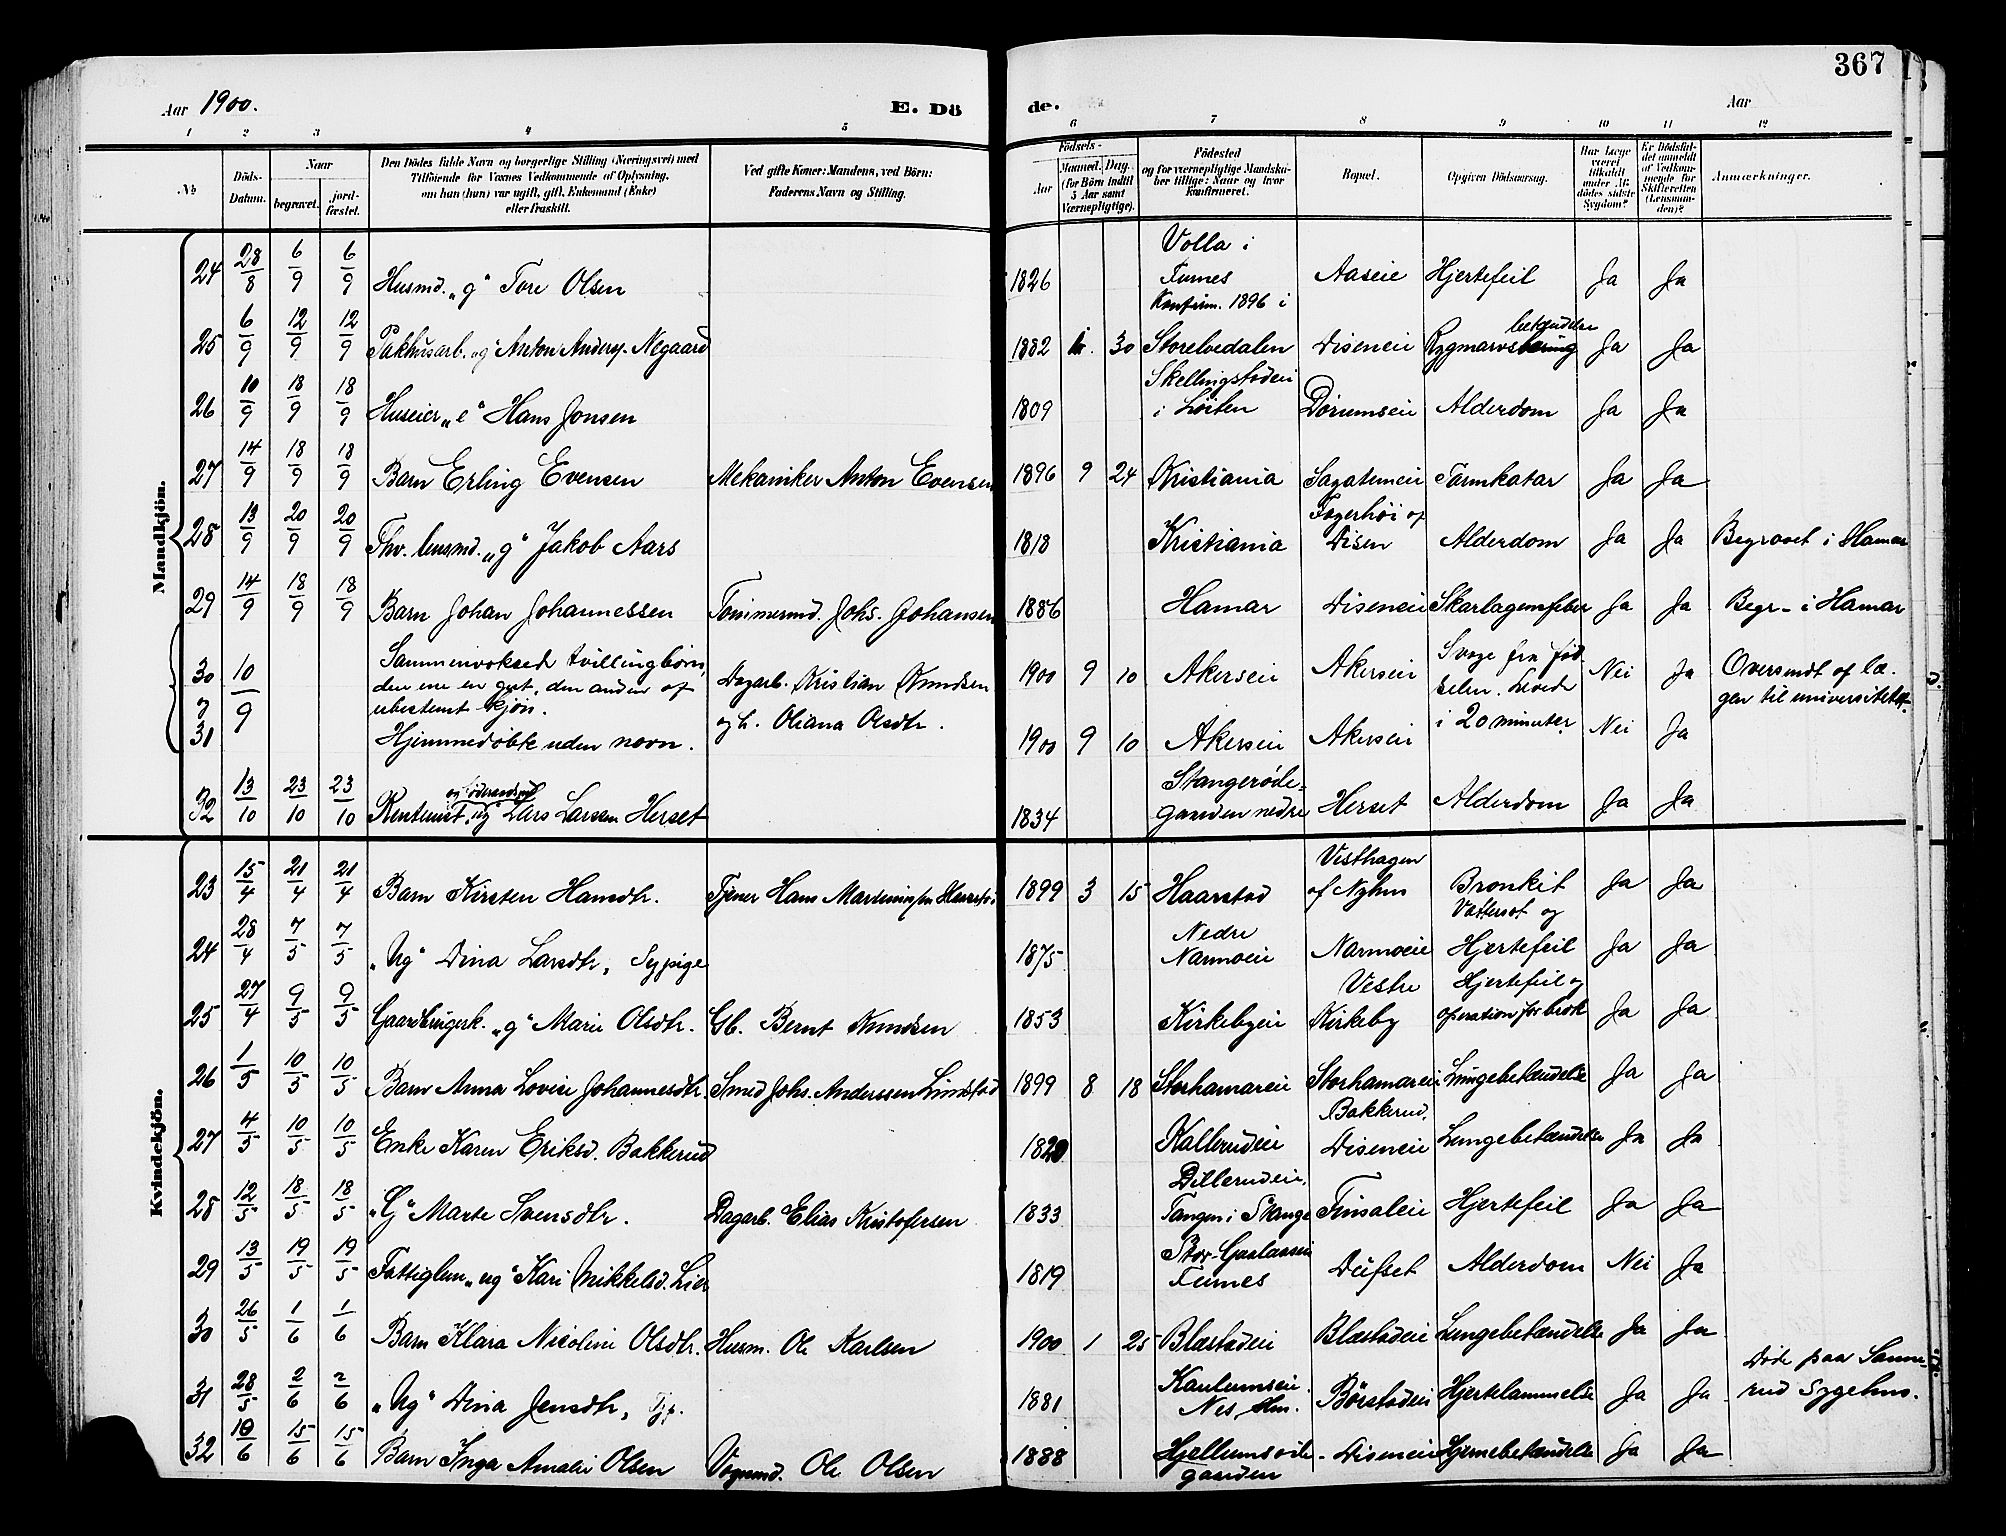 367
Aar 1900. E. Dö de. Aar
1 2 3 4 5 6 7 8 9 10 11 12
No Döds-Datum. Naar begravet. jord-fæstet. Den Dödes fulde Navn og borgerlige Stilling (Næringsvei) med Tilföiende for Voxnes Vedkommende af Oplysning, om han (hun) var ugift, gift, Enkemand (Enke) eller fraskilt. Ved gifte Koner: Mandens, ved Börn: Faderens Navn og Stilling. Födsels- Aar Maaned. Dag. (for Börn indtil 5 Aar samt Værnepligtige). Födested og for værnepligtige Mandskaber tillige: Naar og hvor konfirmeret. Bopæl. Opgiven Dödsaarsag. Har Læge været tilkaldt under Afdödes sidste Sygdom? Er Dödsfaldet anmeldt af Vedkommende for Skifteretten (Lensmanden)? Anmærkninger.
Mandkjön.
24 28/8 6/9 6/9 Husmd. „g" Tore Olsen 1826 Volla i Furnes Aaseie Hjertefeil Ja Ja
25 6/9 12/9 12/9 Pakhusarb. „ug" Anton Anders. Negaard 1882 30 Konfirm. 1896 i Storelvedalen Diseneie Rygmarvs betændelse Ja Ja
26 10/9 18/9 18/9 Huseier „e" Hans Jonsen 1809 Skellingstadeie i Løiten Dørumseie Alderdom Ja Ja
27 14/9 18/9 18/9 Barn Erling Evensen Mekaniker Anton Evensen 1896 9 24 Kristiania Sagatuneie Tarmkatar Ja Ja
28 13/9 20/9 20/9 Fhv. lensmd. „g" Jakob Aars 1818 Kristiania Fagerhøi af Disen Alderdom Ja Ja Begravet i Hamar
29 14/9 18/9 18/9 Barn Johan Johannessen Tømmermd. Johs. Johansen 1886 Hamar Diseneie Skarlagensfeber Ja Ja Begr. i Hamar
30 10/9 Sammenvoksed tvillingbørn, den ene en gut, den anden af ubestemt kjøn. Dagarb. Kristian Knudsen 1900 9 10 Akerseie Akerseie Svage fra fødselen. Levede i 20 minuter. Nei Ja Oversendt af lægen til universitetet.
31 Hjemmedøbte uden navn. og h. Oliana Olsdtr. 1900 9 10 Akerseie Akerseie Nei Ja
32 13/10 23/10 23/10 Rentenist og føderaadsmd „ug" Lars Larsen Herset 1834 Stangerøde-gaarden nedre Herset Alderdom Ja Ja
Kvindekjön.
23 15/4 21/4 21/4 Barn Kirsten Hansdtr. Tjener Hans Martinius 1899 3 15 Haarstad Vesthagen af Nyhus Bronkit Ja Ja
24 28/4 7/5 7/5 „Ug" Dina Larsdtr, Sypige 1875 Nedre Narmoeie Narmoeie Vattersot og Hjertefeil Ja Ja
25 27/4 9/5 9/5 Gaardbrugerk. „g" Marie Olsdtr. Gb. Bernt Knudsen 1853 Kirkebyeie Vestre Kirkeby Hjertefeil og operation for brok Ja Ja
26 1/5 10/5 10/5 Barn Anna Lovise Johannesdtr. Smed Johs. Anderssen Lundstad 1899 8 18 Storhamareie Storhamareie Lungebetændelse Ja Ja
27 4/5 10/5 10/5 Enke Karen Eriksd. Bakkerud 1820 Kallerudeie Bakkerud, Diseneie Lungebetændelse Ja Ja
28 12/5 18/5 18/5 „G" Marte Svensdtr. Dagarb. Elias Kristofersen 1833 Dillerudeie, Tangen i Stange Finsaleie Hjertefeil Ja Ja
29 13/5 19/5 19/5 Fattiglem „ug" Kari Mikkelsd. Lier 1819 Stor-Gaalaaseie Furnes Dufset Alderdom Nei Ja
30 26/5 1/6 1/6 Barn Klara Nicoline Olsdtr. Husm. Ole Karlsen 1900 1 25 Blæstadeie Blæstadeie Lungebetændelse Ja Ja
31 28/5 2/6 2/6 „Ug" Dina Jensdtr, Tjp. 1881 Kaulumseie. Nes, Hm. Børstadeie Hjertelammelse Ja Ja Døde paa Sanne-rud Sygehus.
32 10/6 15/6 15/6 Barn Inga Amalie Olsen Vognmd. Ole Olsen 1888 Hjellumsøde-gaarden Diseneie Hjernebetændelse Ja Ja